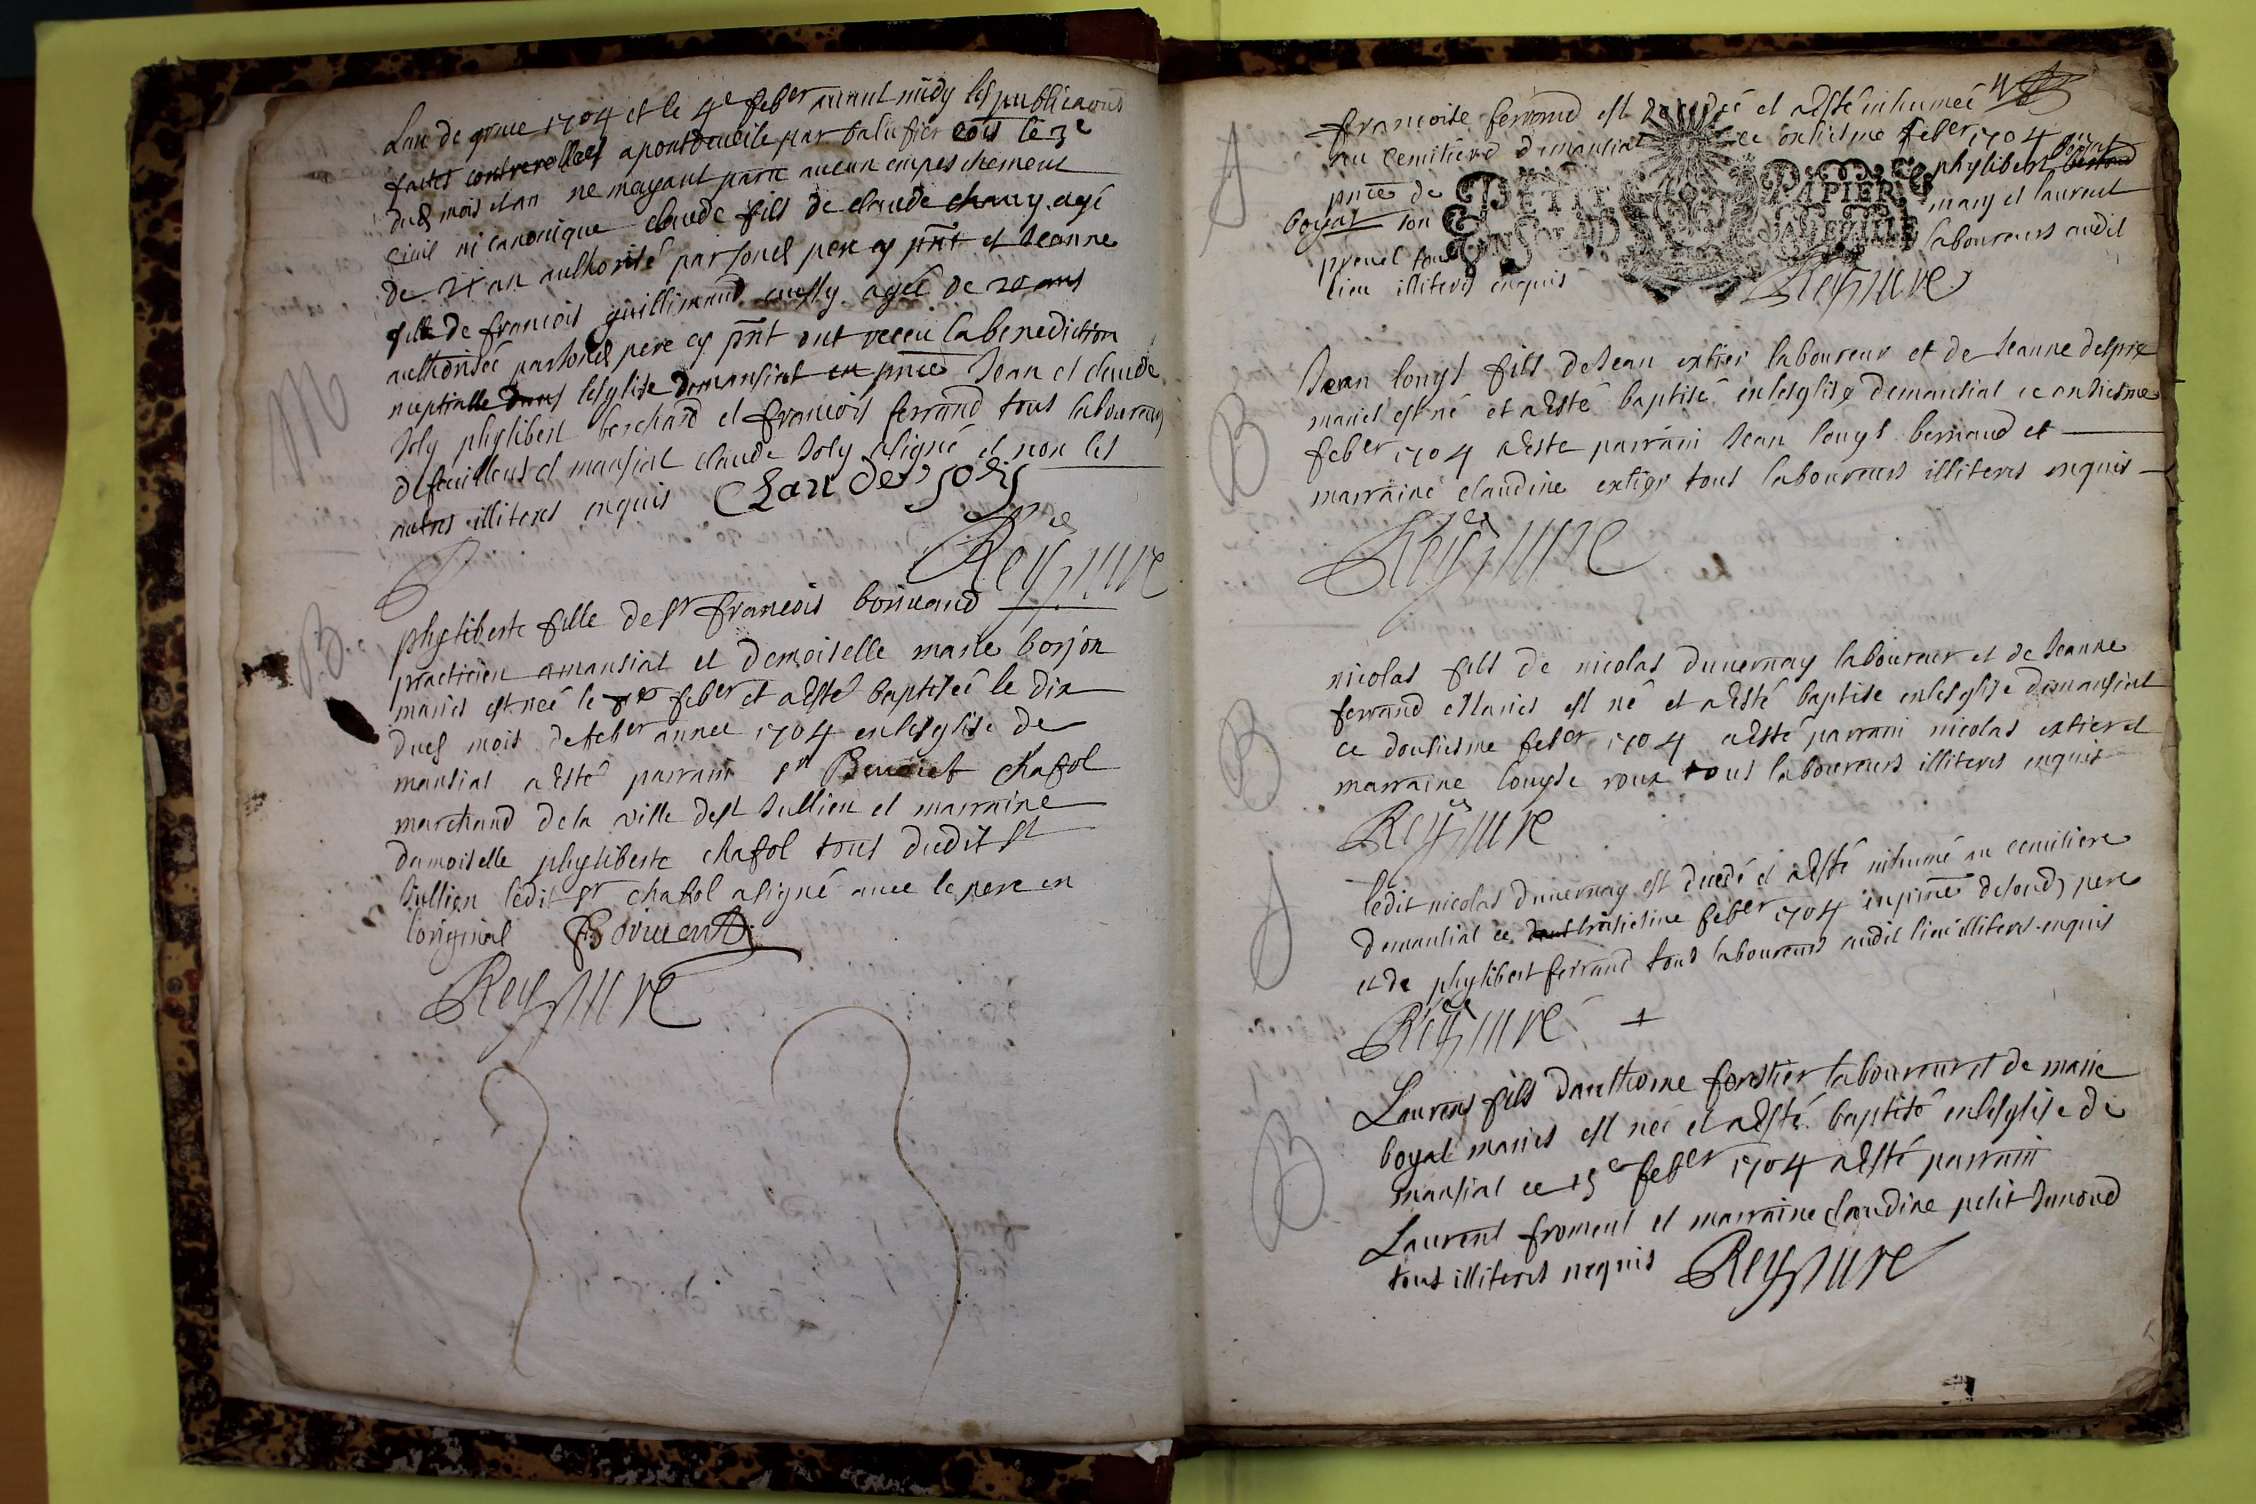 Lan de grace 1704 et le 4e feber auant midy les publications
faites controollees a pontdeueile par balufier cois le 3e
dud mois et an ne mayant paru aucun empeschement
ciuil ni canonique claude fils de claude chany agé
de 21 an authorisé par soned pere cy pnt et Jeanne
fille de francois guillimaud aussy agée de 20 ans
authorisée par soned pere cy pnt ont receu la benediction
nuptialle dans lesglise demansiat en pnce Jean et claude
Joly phylibert berchard et francois ferrand tous laboureurs
defeuillens et mansiat claude Joly a signé et non les
autres illiteres enquis Claude Joly
Reyssure
M
B
phyliberte fille de sr francois boriuand
practicien amansiat et demoiselle marie borjon
mariés est née le feber et a esté baptisée le dix
dued mois de feber annee 1704 en lesglise de
mansiat a esté parrain sr Benoist chafol
marchand dela ville dest Jullien et marraine
damoiselle phyliberte chafol tous dudit st
Jullien ledit sr chafol a signé auec le pere en
loriginal Boriuand
Reyssure
francoise ferrand est decedée et a esté inhumée
au cemitiere demansiat ce onsiesme feber 1704 en
pnce de phylibert boyat
boyat son mary et laurent
preuel tous laboureurs audit
lieu illiteres enquis Reyssure
PETIT PAPIER
B
Jean louys fils de Jean extier laboureur et de Jeanne desprix
mariés est né et a esté baptisé en lesglise demansiat ce onsiesme
feber 1704 a esté parrain Jean louys bernaud et
marraine claudine extier tous laboureurs illiteres enquis
Reyssure
B
nicolas fils de nicolas duuernay laboureur et de Jeanne
ferrand mariés est né et a esté baptisé en lesglise demansiat
ce dousiesme feber 1704 a esté parrain nicolas extier et
marraine louyse roux tous laboureurs illiteres enquis
Reyssure
ledit nicolas duuernay est decedé et a esté inhumé au cemitiere
demansiat ce troisiesme feber 1704 en pnce desond pere
et de phylibert ferrand tous laboureurs audit lieu illiteres enquis
Reyssure +
B
Laurens fils danthoine forestier laboureur et de marie
boyat mariés est né et a esté baptisé en lesglise de
mansiat ce 15e feber 1704 a esté parrain
Laurent froment et marraine claudine petit Jumond
tous illiteres nequis Reyssure